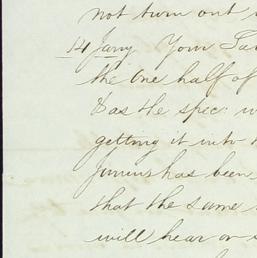 not turn out
14 Jany Your Fa
the one half of
& as the spec: w
getting it into
Junius has been
that the same
will hear or